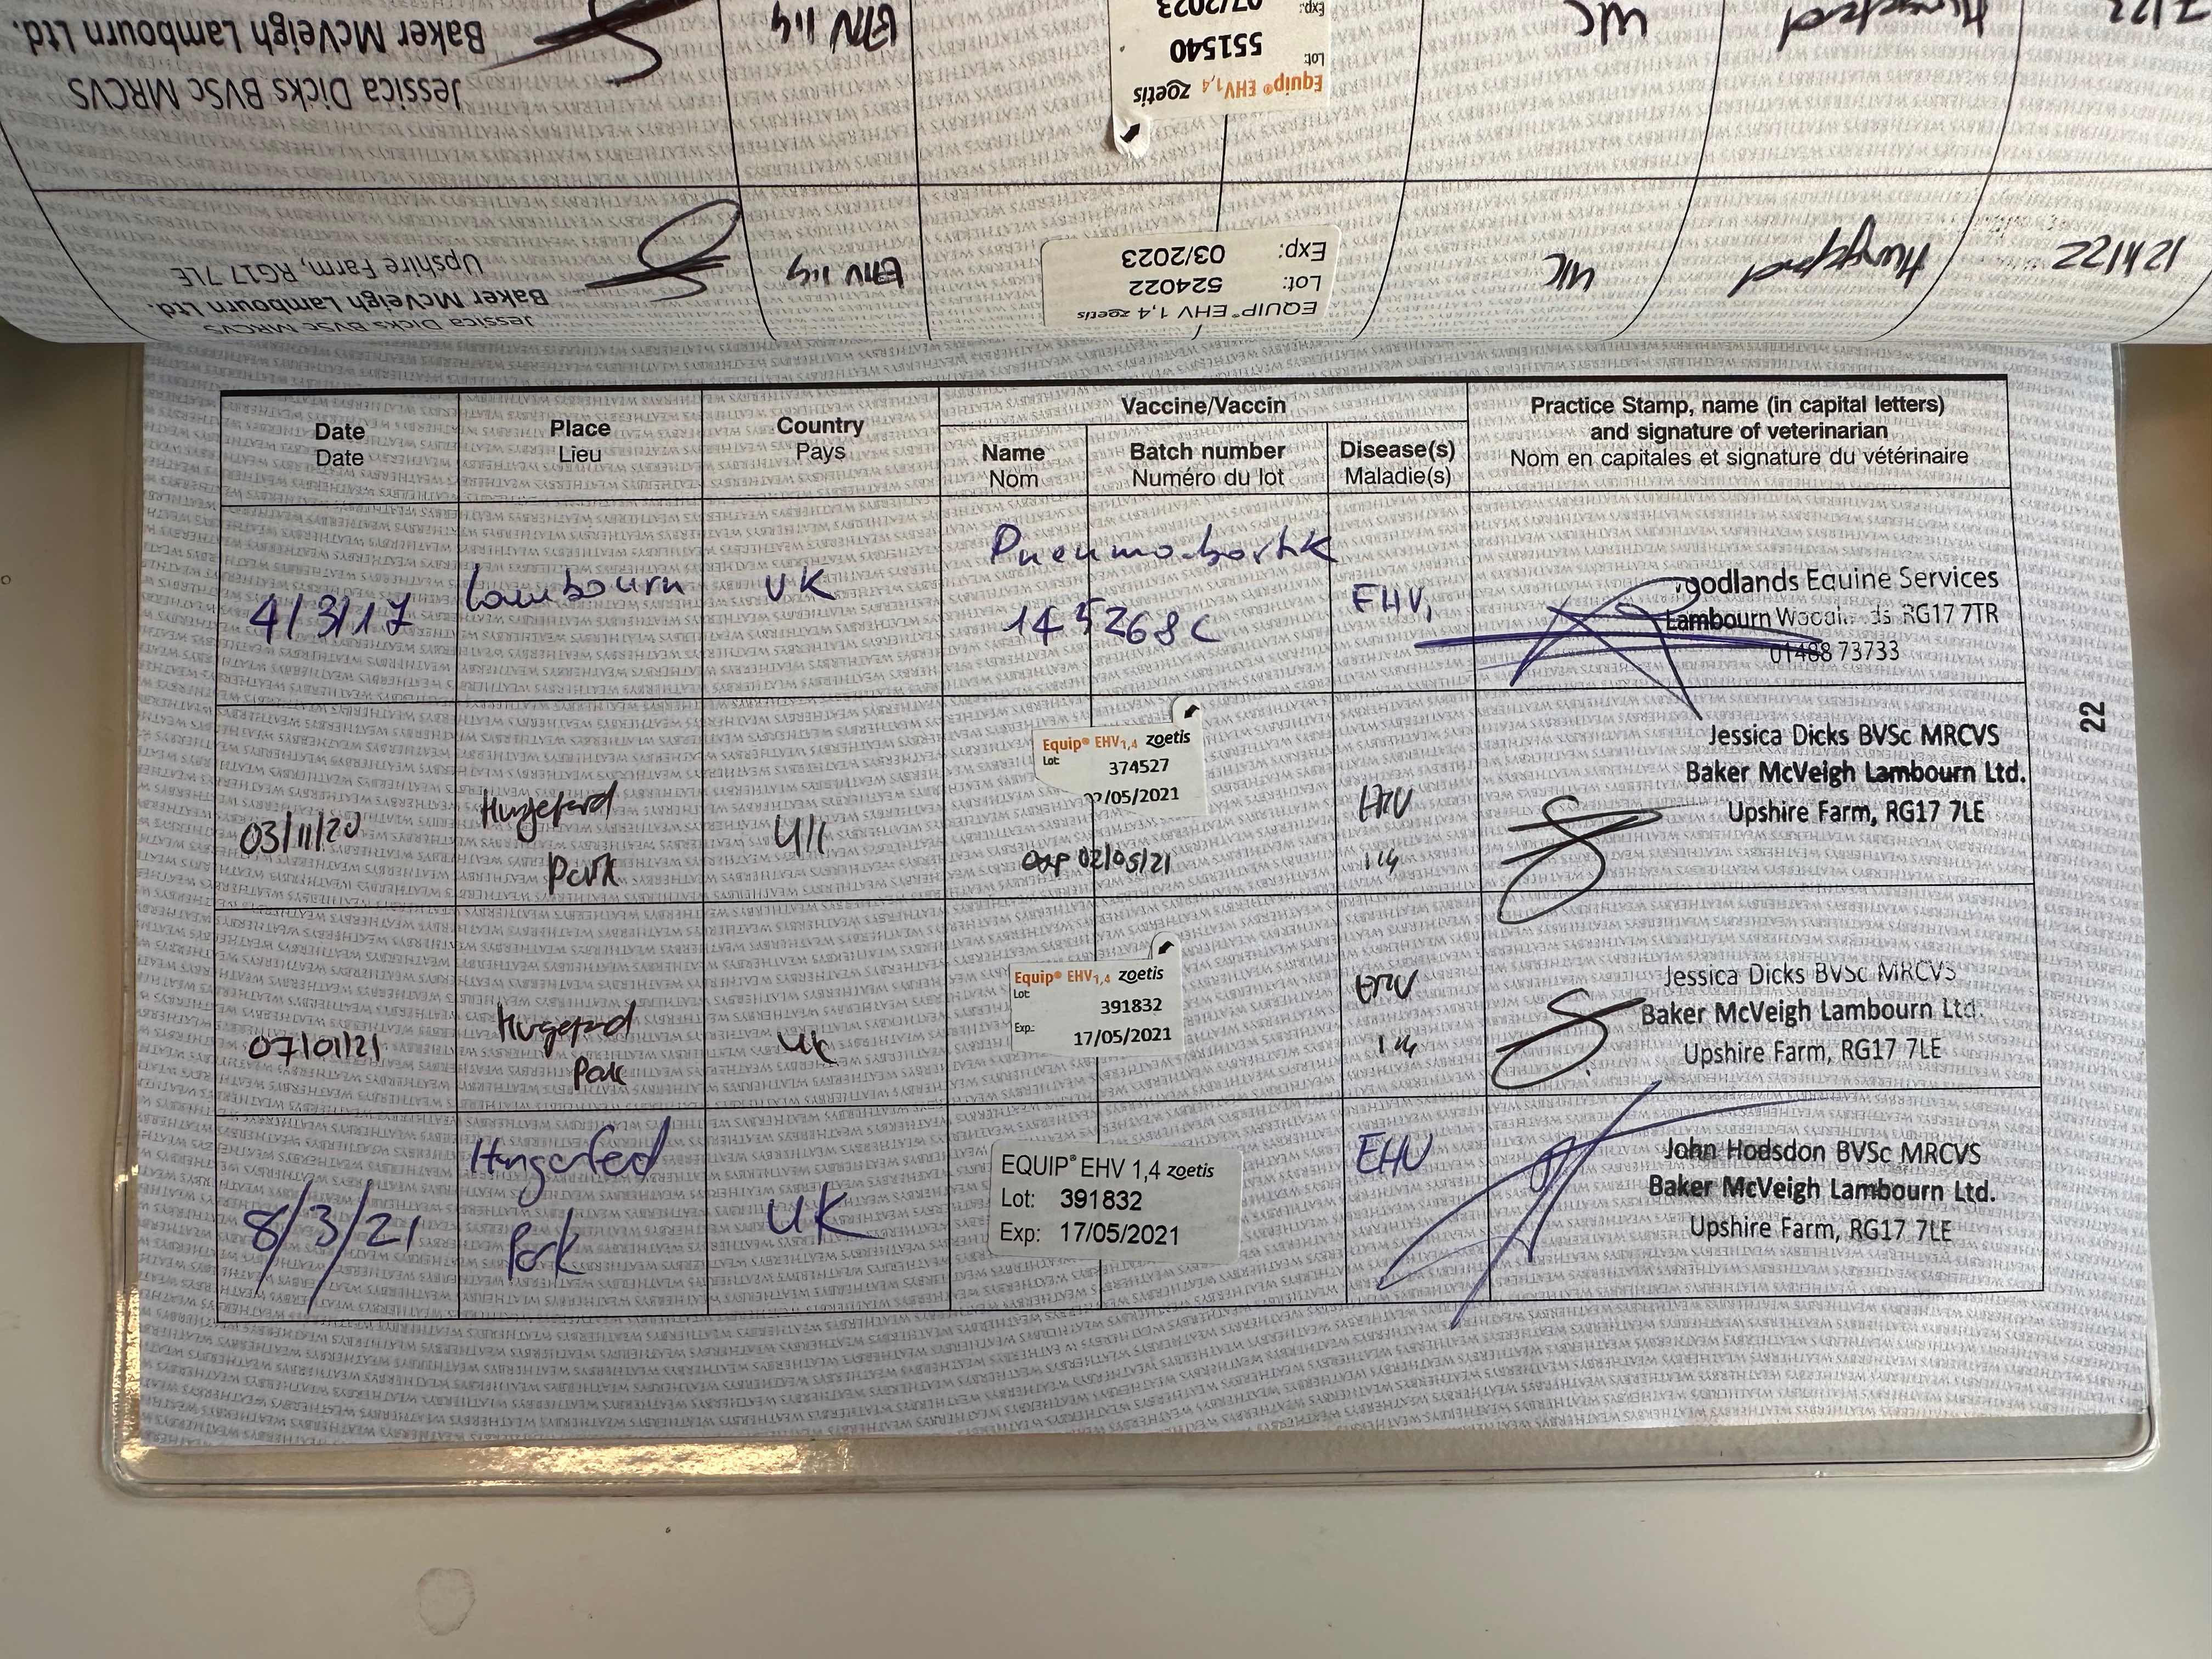 Jessica Dicks BVSc MRCVS
Baker McVeigh Lambourn Ltd.
Equip® EHV1,4 zoetis
Lot: 551540
Exp: 07/2023
EHV 1,4
UK
Jessica Dicks BVSc MRCVS
Baker McVeigh Lambourn Ltd.
Upshire Farm, RG17 7LE
EHV 1,4
EQUIP® EHV 1,4 zoetis
Lot: 524022
Exp: 03/2023
UK
Date
Date
Place
Lieu
Country
Pays
Vaccine/Vaccin
Name
Nom
Batch number
Numéro du lot
Disease(s)
Maladie(s)
Practice Stamp, name (in capital letters)
and signature of veterinarian
Nom en capitales et signature du vétérinaire
4/3/17
Lambourn
UK
Pneumabort K
145268C
EHV1
odlands Equine Services
Lambourn Woodlands RG17 7TR
01488 73733
03/11/20
Hungerford
Park
UK
Equip® EHV1,4 zoetis
Lot: 374527
02/05/2021
exp 02/05/21
EHV
1,4
Jessica Dicks BVSc MRCVS
Baker McVeigh Lambourn Ltd.
Upshire Farm, RG17 7LE
07/01/21
Hungerford
Park
UK
Equip® EHV1,4 zoetis
Lot: 391832
Exp.: 17/05/2021
EHV
1,4
Jessica Dicks BVSc MRCVS
Baker McVeigh Lambourn Ltd.
Upshire Farm, RG17 7LE
8/3/21
Hungerford
Park
UK
EQUIP® EHV 1,4 zoetis
Lot: 391832
Exp: 17/05/2021
EHV
John Hodsdon BVSc MRCVS
Baker McVeigh Lambourn Ltd.
Upshire Farm, RG17 7LE
22